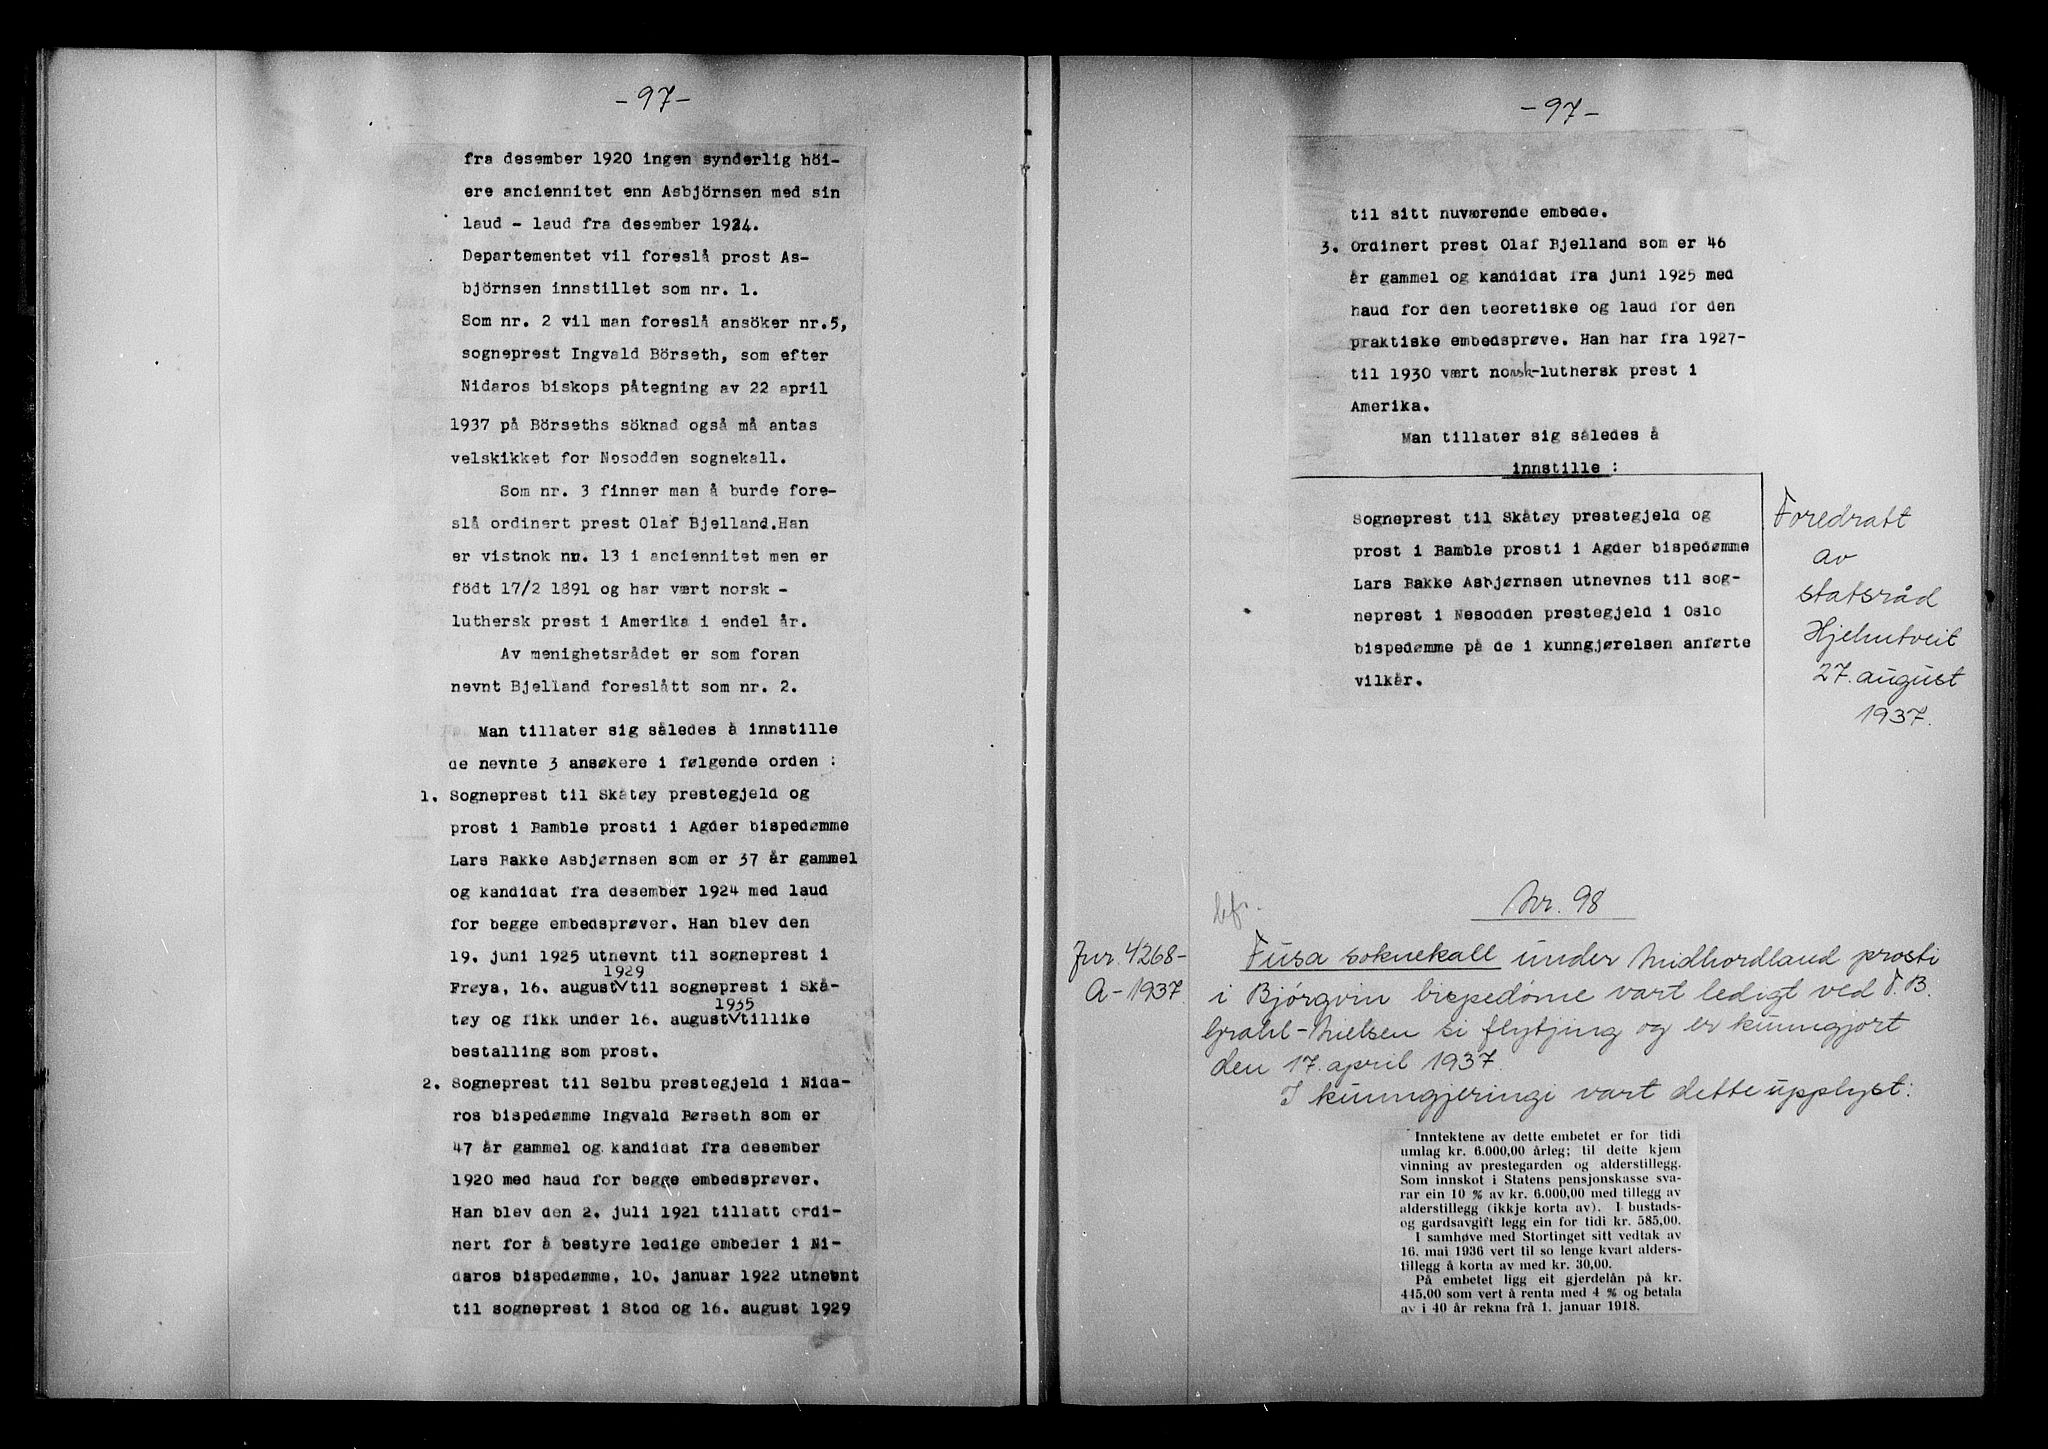 -97-
fra desember 1920 ingen synderlig höi-
ere anciennitet enn Asbjörnsen med sin
laud - laud fra desember 1924.
Departementet vil foreslå prost As-
björnsen innstillet som nr. 1.
Som nr. 2 vil man foreslå ansöker nr.5,
sogneprest Ingvald Börseth, som efter
Nidaros biskops påtegning av 22 april
1937 på Börseths söknad også må antas
velskikket for Nesodden sognekall.
Som nr. 3 finner man å burde fore-
slå ordinert prest Olaf Bjelland.Han
er vistnok nr. 13 i anciennitet men er
födt 17/2 1891 og har vært norsk -
luthersk prest i Amerika i endel år.
Av menighetsrådet er som foran
nevnt Bjelland foreslått som nr. 2.
Man tillater sig således å innstille
de nevnte 3 ansøkere i følgende orden :
1. Sogneprest til Skåtøy prestegjeld og
prost i Bamble prosti i Agder bispedømme
Lars Bakke Asbjørnsen som er 37 år gammel
og kandidat fra desember 1924 med laud
for begge embedsprøver. Han blev den
19. juni 1925 utnevnt til sogneprest i
1929
Frøya, 16. august til sogneprest i Skå-
1935
tøy og fikk under 16. august tillike
bestalling som prost.
2. Sogneprest til Selbu prestegjeld i Nida-
ros bispedømme Ingvald Børseth som er
47 år gammel og kandidat fra desember
1920 med haud for begge embedsprøver.
Han blev den 2. juli 1921 tillatt ordi-
nert for å bestyre ledige embeder i Ni-
daros bispedømme, 10. januar 1922 utnevnt
til sogneprest i Stod og 16. august 1929
-97-
til sitt nuværende embede.
3. Ordinert prest Olaf Bjelland som er 46
år gammel og kandidat fra juni 1925 med
haud for den teoretiske og laud for den
praktiske embedsprøve. Han har fra 1927-
til 1930 vært norsk-luthersk prest i
Amerika.
Man tillater sig således å
innstille :
Sogneprest til Skåtøy prestegjeld og
prost i Bamble prosti i Agder bispedømme
Lars Bakke Asbjørnsen utnevnes til sog-
neprest i Nesodden prestegjeld i Oslo
bispedømme på de i kunngjørelsen anførte
vilkår.
Foredratt
av
statsråd
Hjelmtveit
27. august
1937.
Nr. 98
Jnr. 4268-
A-1937
Fusa soknekall under Midhordland prosti
i Bjørgvin bispedøme vart ledigt ved F. B.
Grahl-Nielsen si flytjing og er kunngjort
den 17. april 1937.
I kunngjeringi vart dette upplyst:
Inntektene av dette embetet er for tidi
umlag kr. 6.000,00 årleg; til dette kjem
vinning av prestegarden og alderstillegg.
Som innskot i Statens pensjonskasse sva-
rar ein 10 % av kr. 6.000,00 med tillegg av
alderstillegg (ikkje korta av). I bustads-
og gardsavgift legg ein for tidi kr. 585,00.
I samhøve med Stortinget sitt vedtak av
16. mai 1936 vert til so lenge kvart alders-
tillegg å korta av med kr. 30,00.
På embetet ligg eit gjerdelån på kr.
445,00 som vert å renta med 4 % og betala
av i 40 år rekna frå 1. januar 1918.